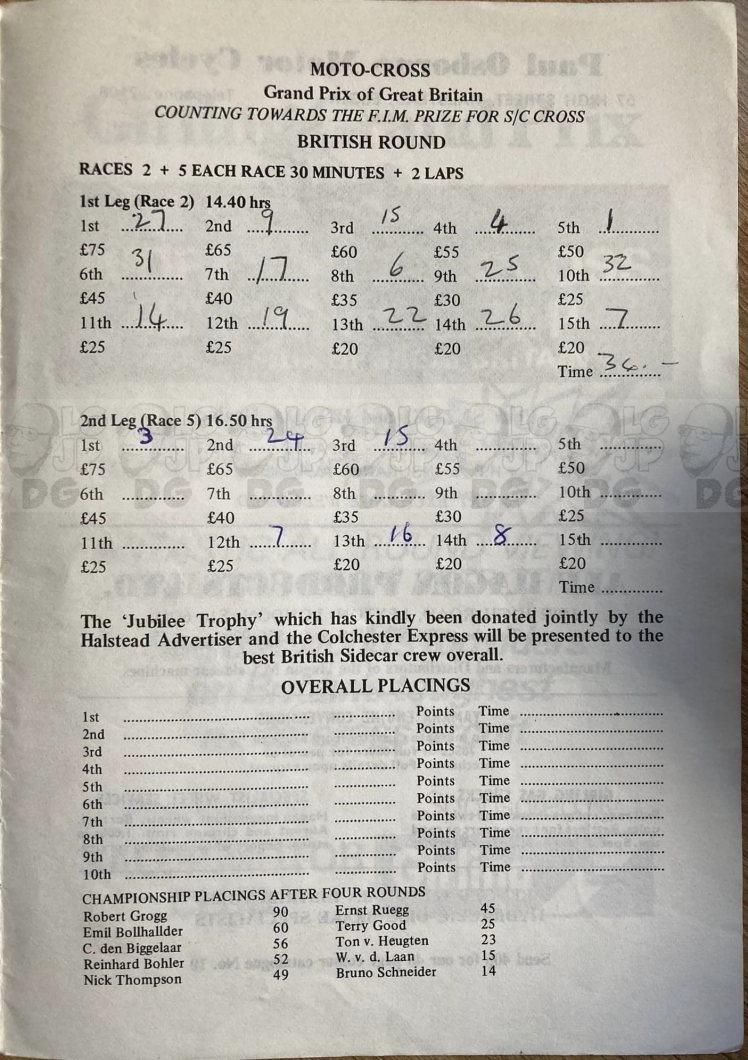 MOTO-CROSS
Grand Prix of Great Britain
COUNTING TOWARDS THE F.I.M. PRIZE FOR S/C CROSS
BRITISH ROUND
RACES 2 + 5 EACH RACE 30 MINUTES + 2 LAPS
1st Leg (Race 2) 14.40 hrs
1st 27 2nd 9 3rd 15 4th 4 5th 1
£75 £65 £60 £55 £50
6th 31 7th 17 8th 6 9th 25 10th 32
£45 £40 £35 £30 £25
11th 14 12th 19 13th 22 14th 26 15th 7
£25 £25 £20 £20 £20
Time
2nd Leg (Race 5) 16.50 hrs
1st 3 2nd 24 3rd 15 4th 5th
£75 £65 £60 £55 £50
6th 7th 8th 9th 10th
£45 £40 £35 £30 £25
11th 12th 7 13th 16 14th 8 15th
£25 £25 £20 £20 £20
Time
The 'Jubilee Trophy' which has kindly been donated jointly by the
Halstead Advertiser and the Colchester Express will be presented to the
best British Sidecar crew overall.
OVERALL PLACINGS
1st Points Time
2nd Points Time
3rd Points Time
4th Points Time
5th Points Time
6th Points Time
7th Points Time
8th Points Time
9th Points Time
10th Points Time
CHAMPIONSHIP PLACINGS AFTER FOUR ROUNDS
Robert Grogg 90 Ernst Ruegg 45
Emil Bollhallder 60 Terry Good 25
C. den Biggelaar 56 Ton v. Heugten 23
Reinhard Bohler 52 W. v. d. Laan 15
Nick Thompson 49 Bruno Schneider 14